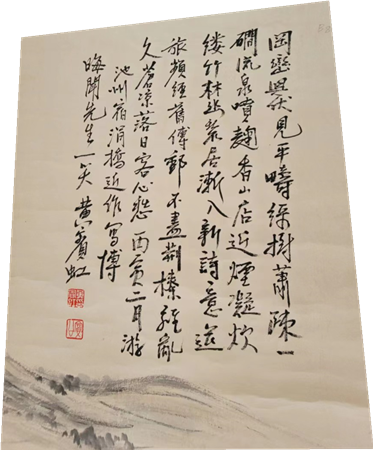 岡巒見平疇綠樹蕭疎一
磵流泉噴麹香山店近煙凝炊
縷竹林幽居漸入新詩意
旅頻經舊傳郵不盡荊榛經亂
久蒼涼落日客心愁 丙寅二月游
池州宿涓橋近作寫博
晦聞先生一笑 黃賓虹